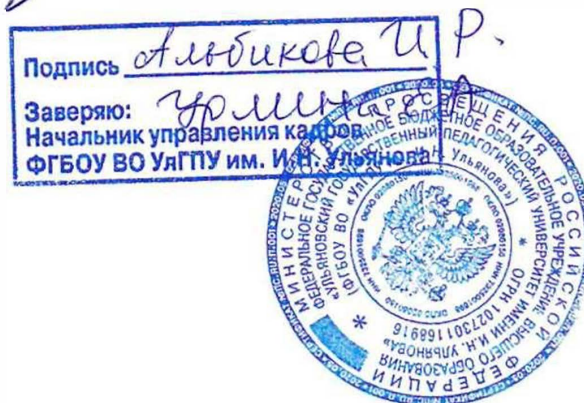 Подпись Альбикова И Р.
Заверяю: Урмин
Начальник управления кадров
ФГБОУ ВО УлГПУ им. И.Н. Ульянова
МИНИСТЕРСТВО ПРОСВЕЩЕНИЯ РОССИЙСКОЙ ФЕДЕРАЦИИ
ФЕДЕРАЛЬНОЕ ГОСУДАРСТВЕННОЕ БЮДЖЕТНОЕ ОБРАЗОВАТЕЛЬНОЕ УЧРЕЖДЕНИЕ ВЫСШЕГО ОБРАЗОВАНИЯ
«УЛЬЯНОВСКИЙ ГОСУДАРСТВЕННЫЙ ПЕДАГОГИЧЕСКИЙ УНИВЕРСИТЕТ ИМЕНИ И.Н. УЛЬЯНОВА»
(ФГБОУ ВО «УлГПУ им. И.Н. Ульянова») * ОГРН 1027301168916 *